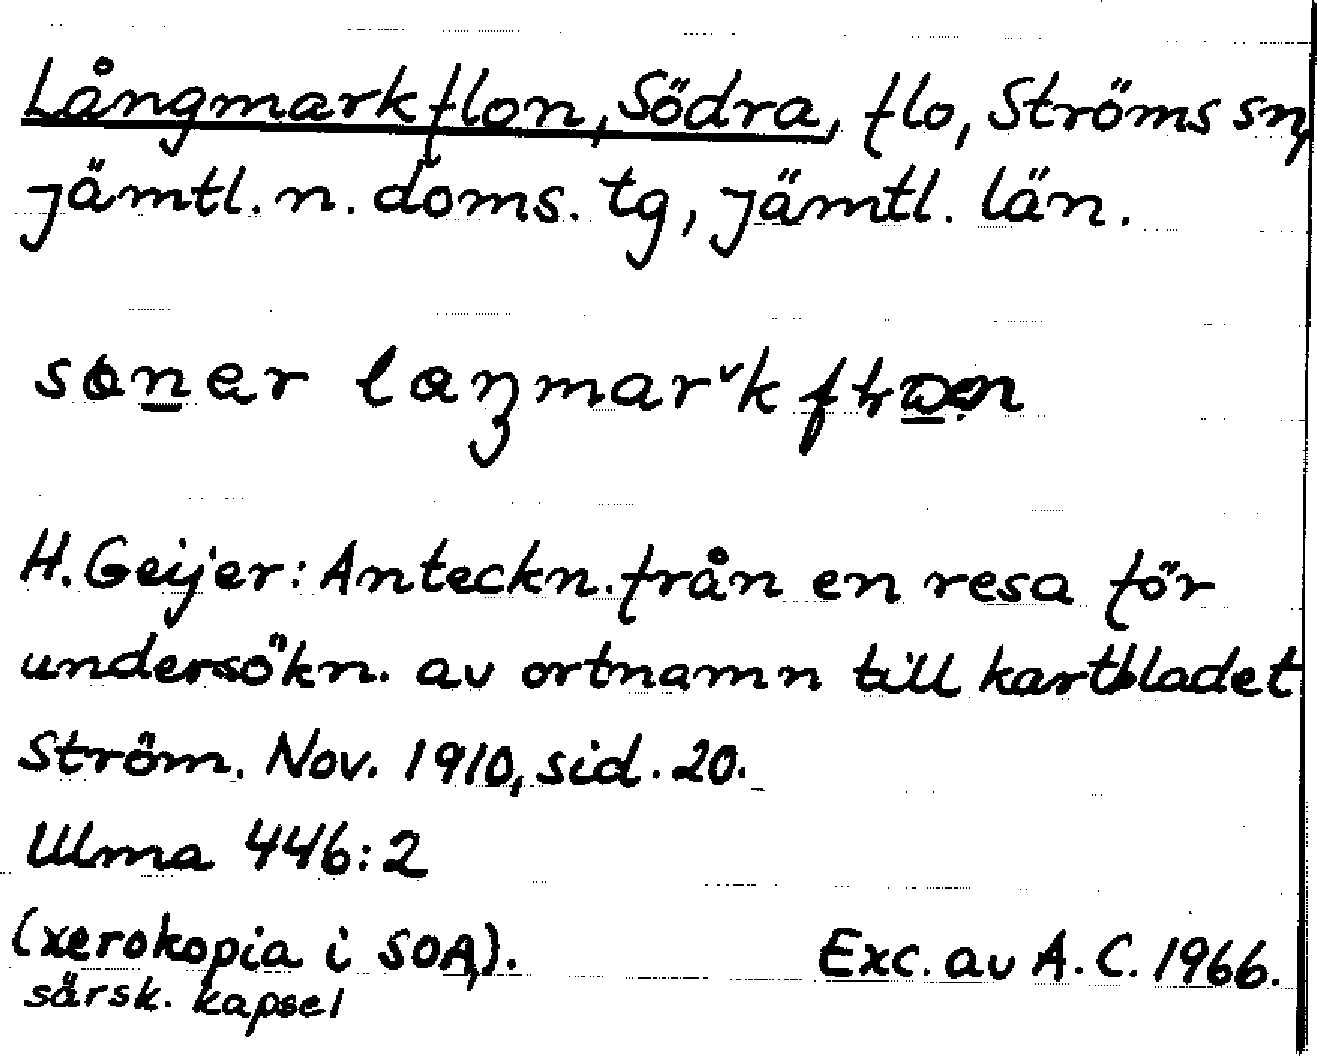 Långmarkflon, Södra, flo, Ströms sn,
Jämtl. n. doms. tg, Jämtl. län.
H. Geijer: Anteckn. från en resa för
undersökn. av ortnamn till kartbladet
Ström. Nov. 1910, sid. 20.
Ulma 446:2
(xerokopia i SOA,). Exc. av A. C. 1966.
särsk. kapsel